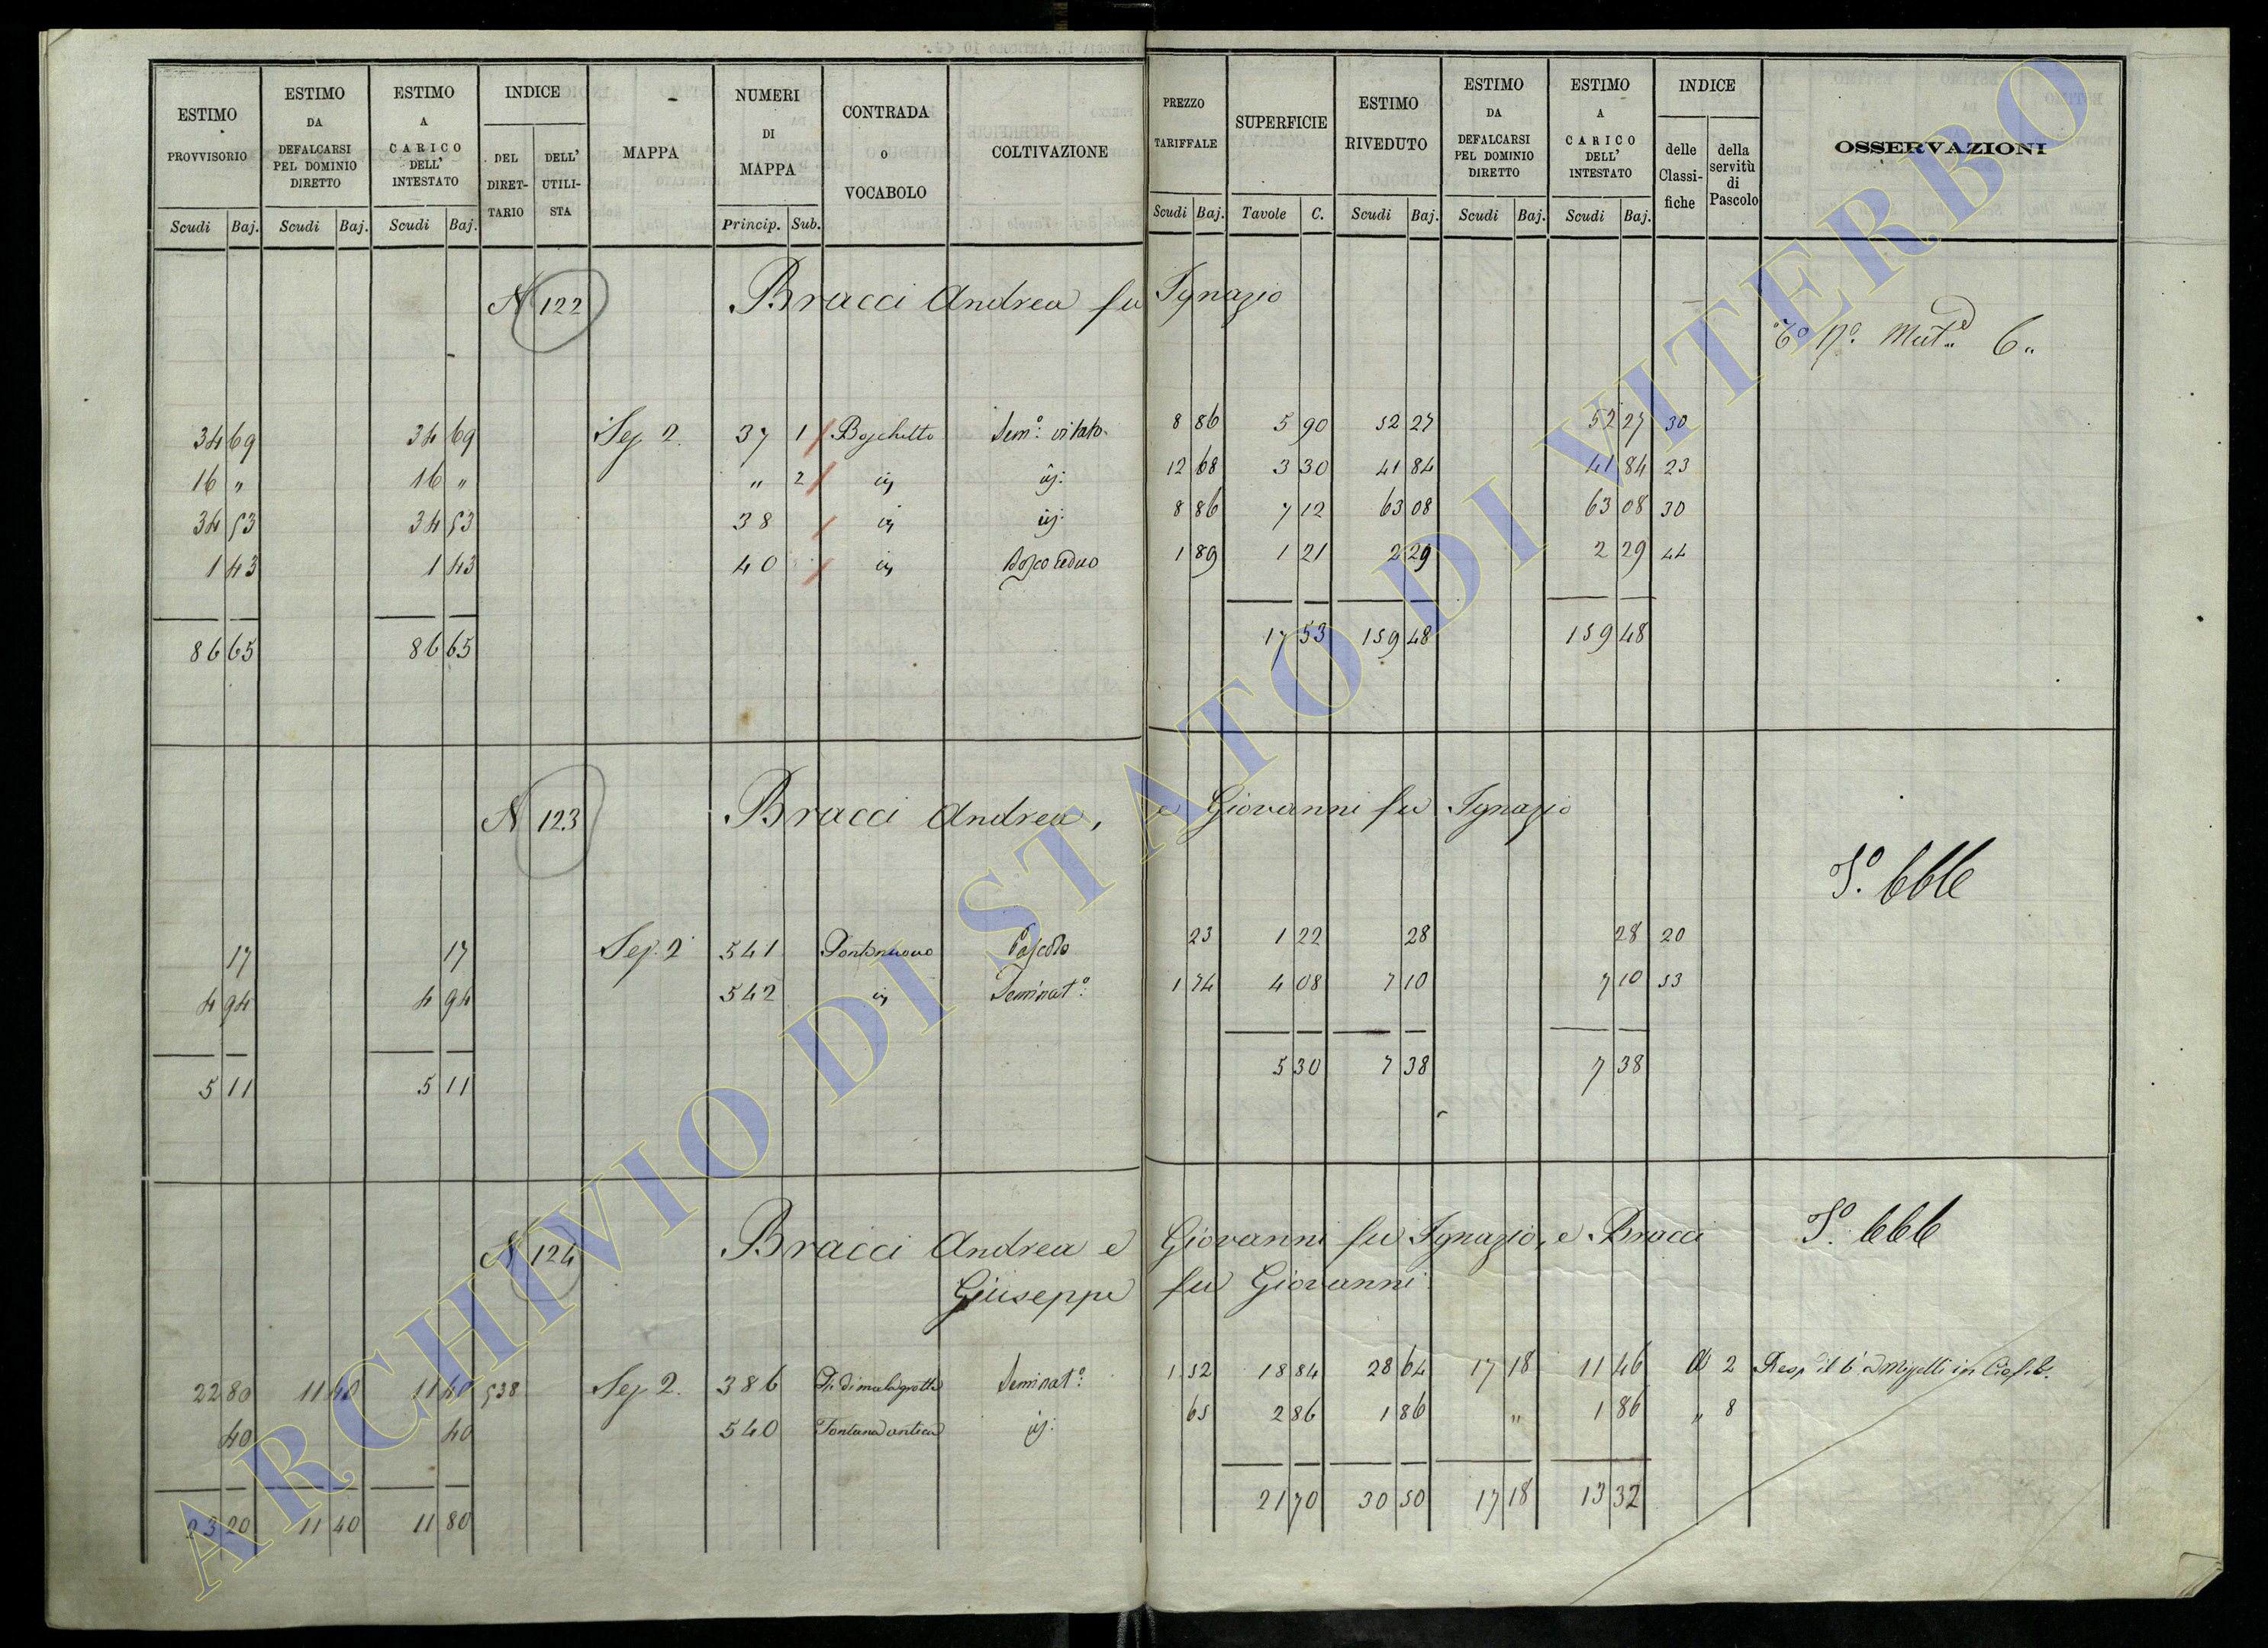 ESTIMO PROVVISORIO | ESTIMO DA DEFALCARSI PEL DOMINIO DIRETTO | ESTIMO A CARICO DELL' INTESTATO | INDICE | MAPPA | NUMERI DI MAPPA | CONTRADA O VOCABOLO | COLTIVAZIONE | PREZZO TARIFFALE | SUPERFICIE | ESTIMO RIVEDUTO | ESTIMO DA DEFALCARSI PEL DOMINIO DIRETTO | ESTIMO A CARICO DELL' INTESTATO | INDICE | OSSERVAZIONI
DEL DIRETTARIO | DELL' UTILISTA | delle Classifiche | della servitù di Pascolo
Scudi Baj. | Scudi Baj. | Scudi Baj. | Princip. Sub. | Scudi Baj. | Tavole C. | Scudi Baj. | Scudi Baj. | Scudi Baj.
N 122 Bracci Andrea fu Ignazio
6"
34 69 | 34 69 | Sez. 2. | 37 1 | Boschetto | Sem.º vitato | 8 86 | 5 90 | 52 27 | 52 27 | 30
16 " | 16 " | " 2 | 12 68 | 3 30 | 41 84 | 41 84 | 23
34 53 | 34 53 | 38 | 8 86 | 7 12 | 63 08 | 63 08 | 30
1 43 | 1 43 | 40 | Bosco ceduo | 1 89 | 1 21 | 2 29 | 2 29 | 44
86 65 | 86 65 | 17 53 | 159 48 | 159 48
N 123 Bracci Andrea, e Giovanni fu Ignazio
17 | 17 | Sez. 2 | 541 | Pontonuovo | Pascolo | 23 | 1 22 | 28 | 28 | 20
4 94 | 4 94 | 542 | Seminat.º | 1 74 | 4 08 | 7 10 | 7 10 | 53
5 11 | 5 11 | 5 30 | 7 38 | 7 38
N 124 Bracci Andrea e Giovanni fu Ignazio, e Bracci
Giuseppe fu Giovanni
22 80 | 11 40 | 11 40 | 538 | Sez. 2. | 386 | Seminat.º | 1 52 | 18 84 | 28 64 | 17 18 | 11 46 | 2
40 | 40 | 540 | Fontana antica | 65 | 2 86 | 1 86 | " | 1 86 | " 8
23 20 | 11 40 | 11 80 | 21 70 | 30 50 | 17 18 | 13 32
ARCHIVIO DI STATO DI VITERBO